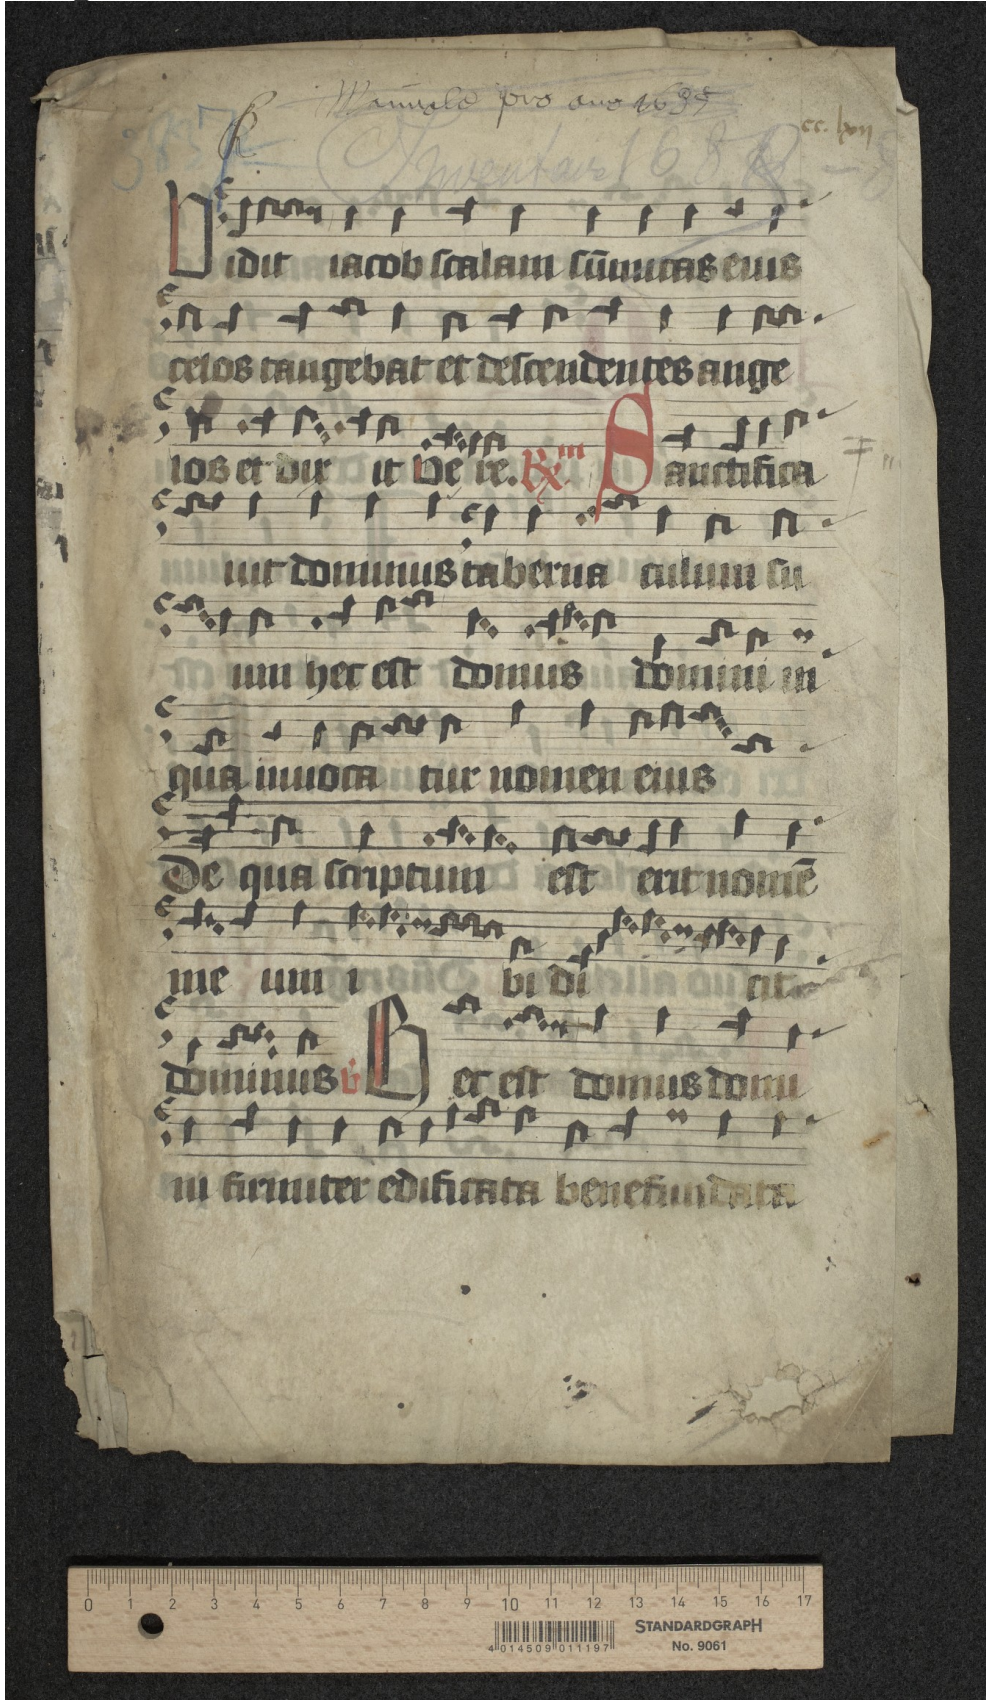 Manuale pro ano 1635
cc. lxii
Inventare 1688
Vidit iacob scalam sūmitas eius
celos tangebat et descendentes ange
los et dix it Ve re. Rm Sanctifica
uit dominus taberna culum su
um hec est domus domini in
qua inuoca tur nomen eius
De qua scriptum est erit nomē
me um i bi di cit
dominus v Hec est domus domi
ni firmiter edificata bene fundata
0 1 2 3 4 5 6 7 8 9 10 11 12 13 14 15 16 17
STANDARDGRAPH
4 014509 011197
No. 9061